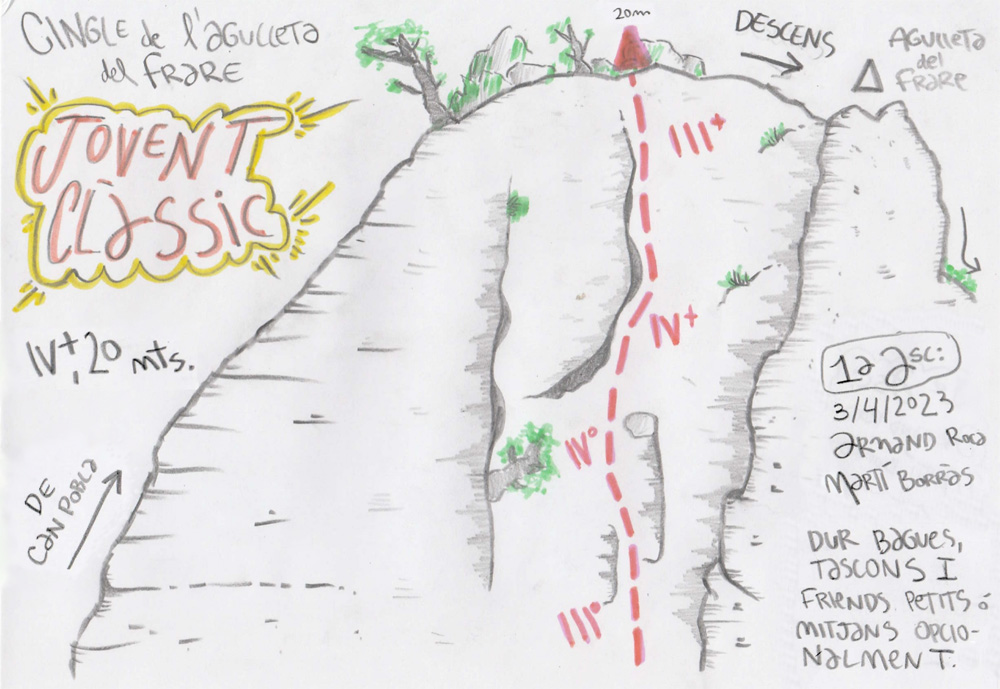 CINGLE de l'aguLLeTa
del FRaRE
JOVENT
CLÀSSIC
IV+, 20 mts.
DE
Can Pobla
20m
DESCENS
AguLLeTa
del
FRaRE
III+
IV+
IVº
IIIº
1a asc:
3/4/2023
aRmanD Roca
MaRTÍ BoRRàs
DUR BAGUES,
TASCONS I
FRIENDS PETITS ó
MITJANS OPCIO-
NALMENT.